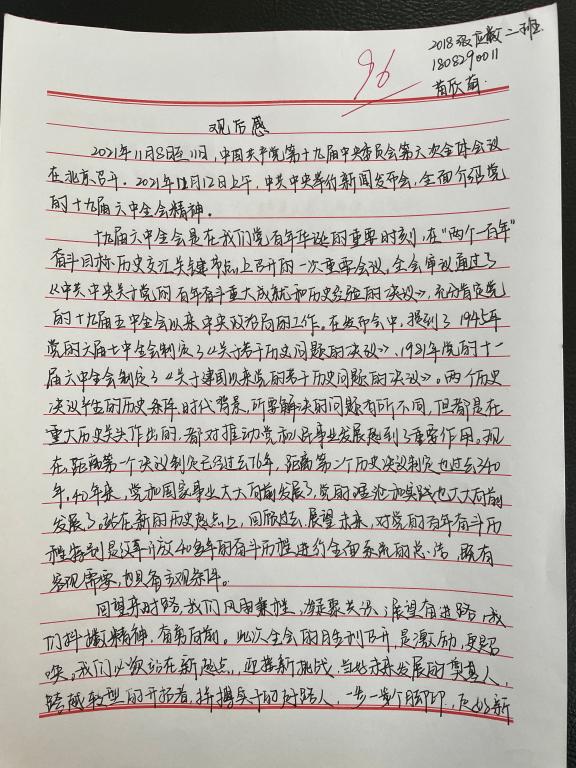 2018级应数二班
1808290011
96
观后感
2021年11月8日至11日,中国共产党第十九届中央委员会第六次全体会议
在北京召开。2021年11月12日上午,中共中央举行新闻发布会,全面介绍党
的十九届六中全会精神。
十九届六中全会是在我们党百年华诞的重要时刻,在“两个一百年”
奋斗目标历史交汇关键节点上召开的一次重要会议。全会审议通过了
《中共中央关于党的百年奋斗重大成就和历史经验的决议》,充分肯定党
的十九届五中全会以来中央政治局的工作。在发布会中,提到了1945年
党的六届七中全会制定了《关于若干历史问题的决议》、1981年党的十一
届六中全会制定了《关于建国以来党的若干历史问题的决议》。两个历史
决议产生的历史条件、时代背景,所要解决的问题有所不同,但都是在
重大历史关头作出的,都对推动党和人民事业发展起到了重要作用。现
在,距离第一个决议制定已经过去76年,距离第二个历史决议制定也过去40
年,40年来,党和国家事业大大向前发展了,党的理论和实践也大大向前
发展了。站在新的历史起点上,回顾过去,展望未来,对党的百年奋斗历
程特别是改革开放40多年的奋斗历程进行全面系统的总结,既有
客观需要,也具有主观条件。
回望来时路,我们风雨兼程,凝聚共识;展望前进路,我
们抖擞精神,奋勇向前。此次全会的胜利召开,是激励,更是召
唤。我们必须站在新起点,迎接新挑战,当好未来发展的奠基人,
跨越转型的开拓者,拼搏实干的好路人,一步一个脚印,